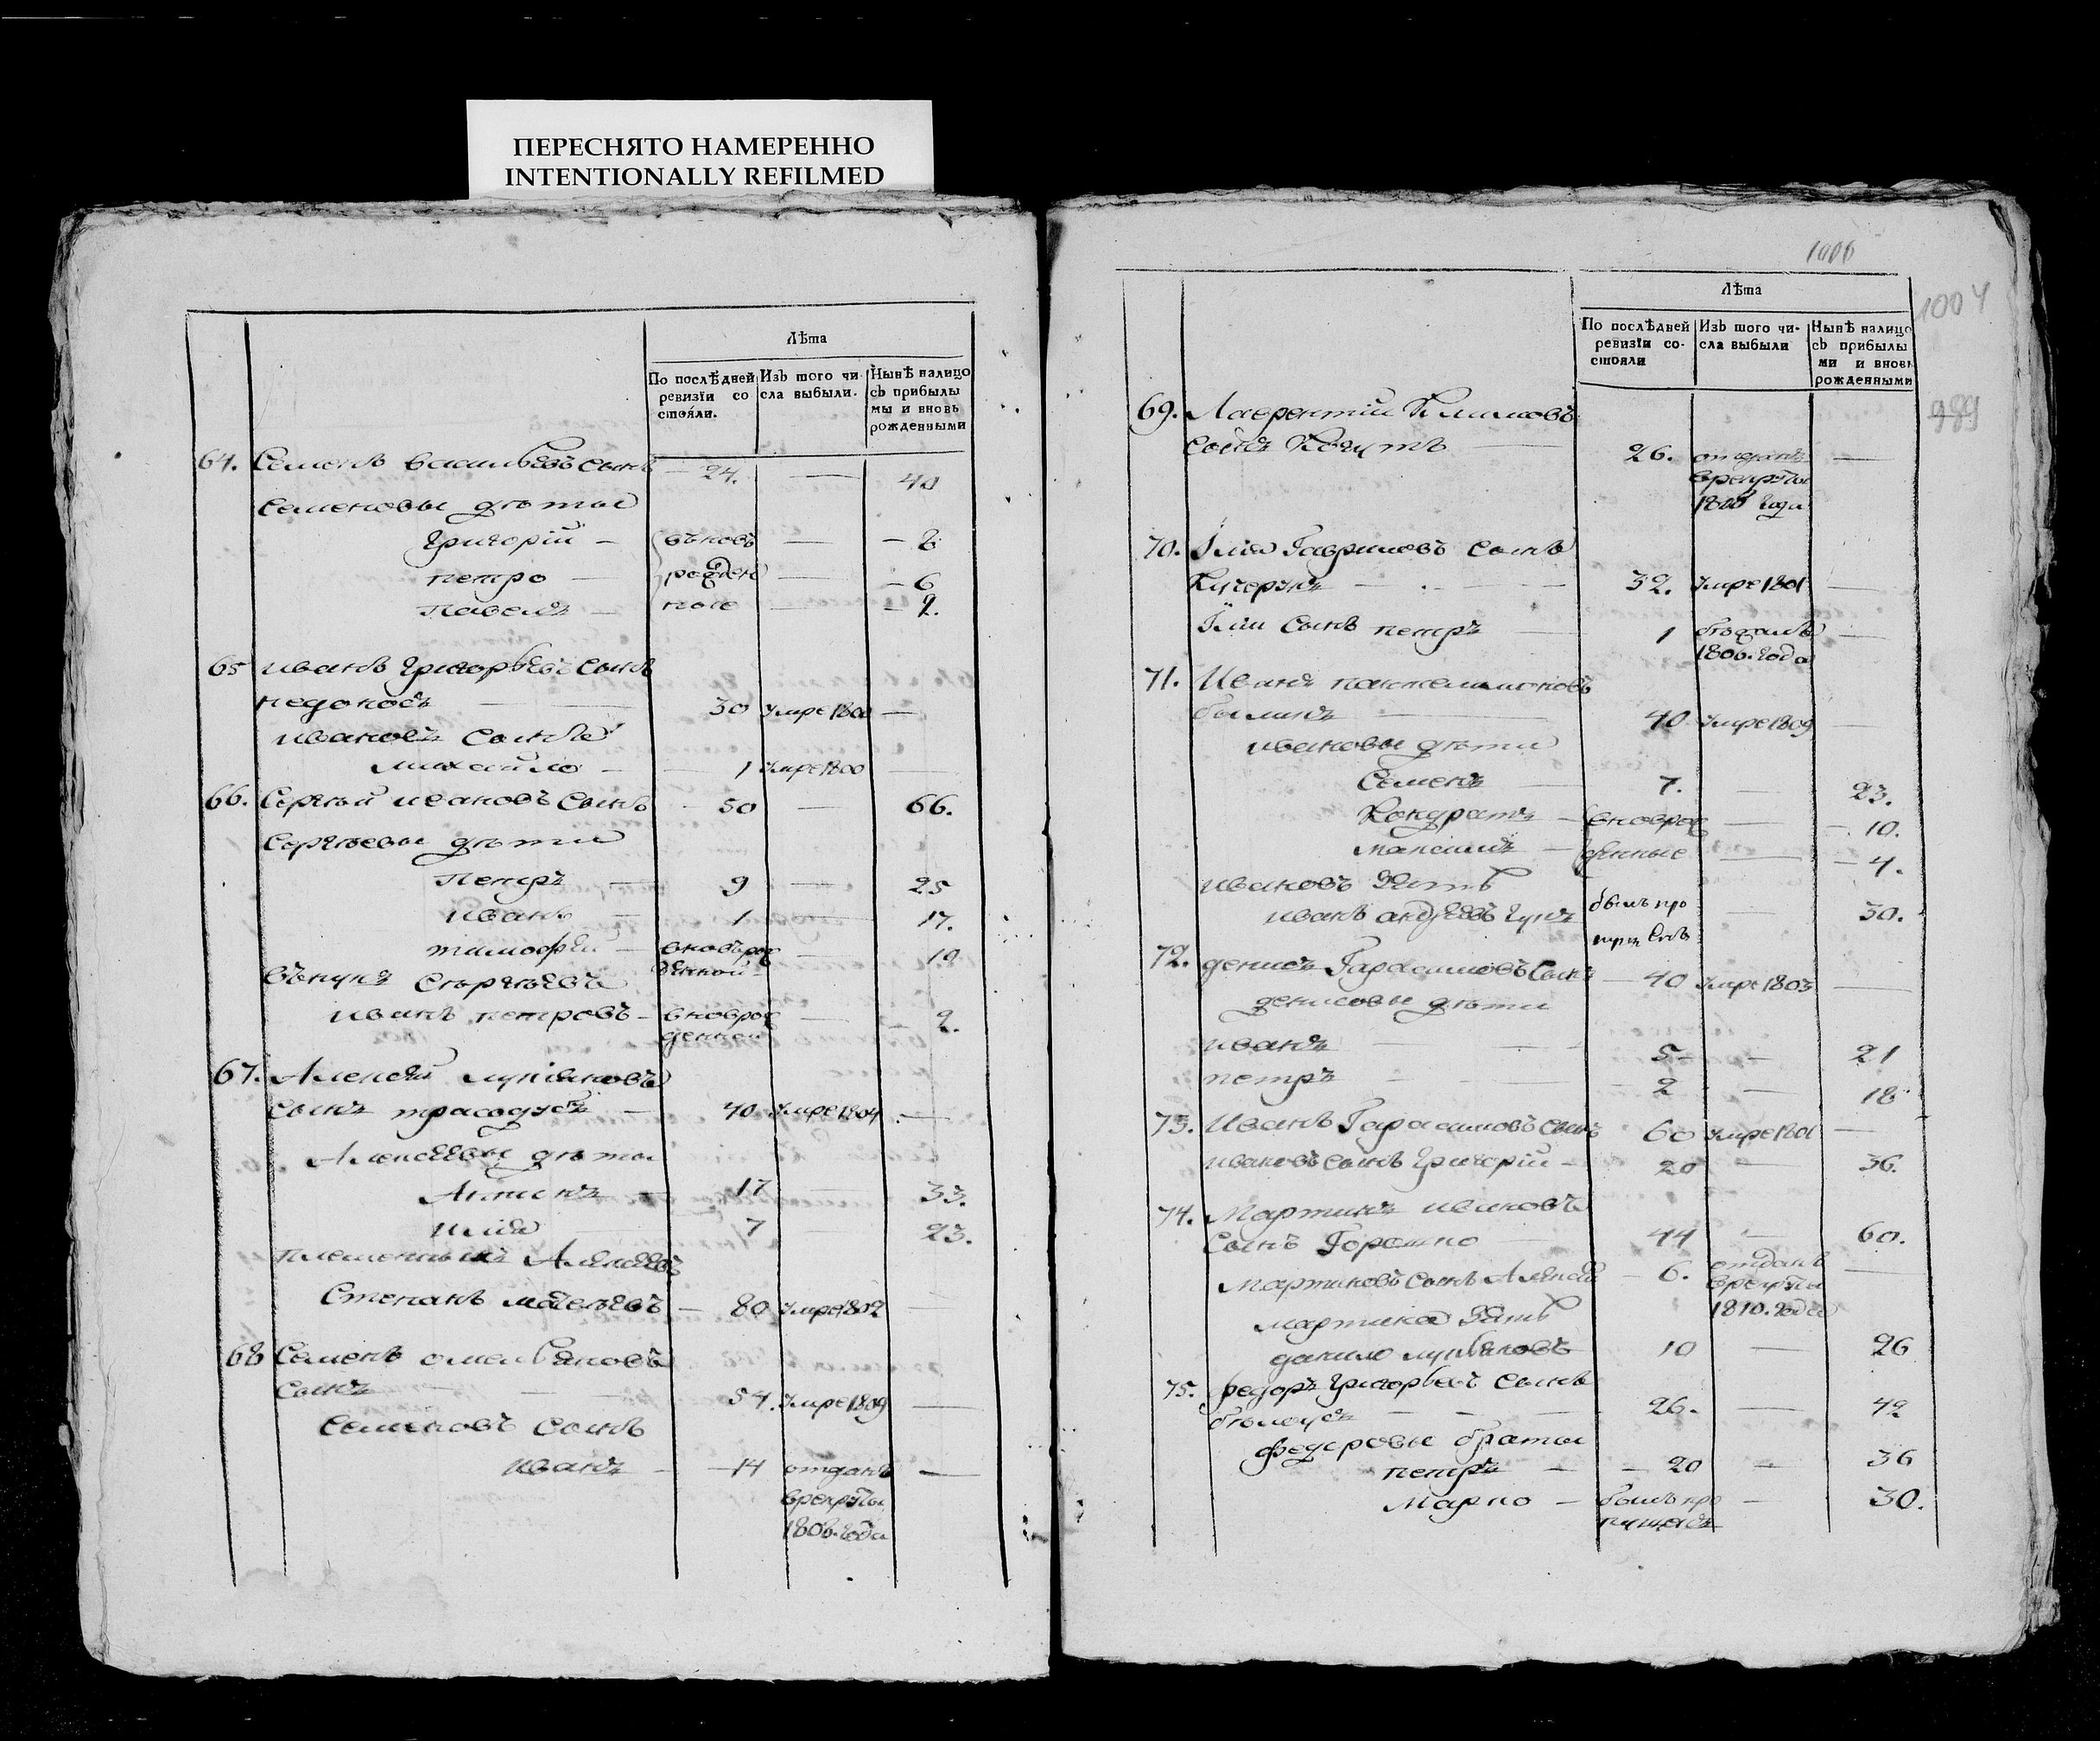 ПЕРЕСНЯТО НАМЕРЕННО
INTENTIONALLY REFILMED
Лѣта
По послѣдней ревизїи состояли.
Изъ того числа выбыли.
Нынѣ налицо съ прибылымы и вновь рожденными
64. Семенъ васильевъ сынъ — 24. — 40
Семеновы дѣты
Григорій — вънов — 8
петро — рожден — 6
Павелъ — ные — 2.
65 иванъ григорьевъ сынъ
недоносъ — 30 Умре 1800 —
ивановъ сынъ
михайло — 1 Умре 1800 —
66. Сергѣй ивановъ сынъ 50 — 66.
Сергѣевы дѣти
Петръ — 9 — 25
иванъ — 1 — 17.
тимофей — вноврож — 10
денной
вънукъ Сергѣевъ
иванъ петровъ — вноврож — 2.
денной
67. Алексѣй лукіяновъ
сынъ — 40 Умре 1804 —
Алексѣевы дѣты
Антонъ — 17 — 33.
илія 7 — 23.
племенникъ Алексѣевъ
Степанъ — 80 Умре 1802 —
68 Семенъ омельяновъ
сынъ — 54. Умре 1809 —
Семеновъ сынъ
иванъ — 14 отданъ —
врекруты
1806. года
1006
1004
989
Лѣта
По послѣдней ревизїи состояли
Изъ того числа выбыли
Нынѣ налицо съ прибылыми и вновь рожденными
69. Лаврентій Климовъ
сынъ Когутъ — 26. отданъ —
врекруты
1810 года
70. Iлія Гавриловъ сынъ
Кучерукъ — 32. Умре 1801 —
Iліи сынъ петръ — 1
1806. года
71. Иванъ пантелимоновъ
былимъ — 40 Умре 1809 —
ивановы дѣти
Семенъ — 7. — 23.
Кондратъ — вноврож — 10.
максимъ — денные — 4.
ивановъ Зять
иванъ андрѣевъ — былъ про — 30.
72. денисъ Гарасимовъ сынъ — 40 Умре 1803 —
денисовы дѣти
иванъ — 5 — 21
петръ — 2 — 18
73. Иванъ Гарасимовъ сынъ 60 Умре 1801 —
ивановъ сынъ Григорій — 20 — 36.
74. Мартинъ ивановъ
сынъ — 44 — 60.
Мартиновъ сынъ Алексѣй — 6. отданъ —
врекруты
1810. года
мартина Зять
данило лукьяновъ 10 — 26
75. федоръ григорьевъ сынъ
білоусъ — 26. — 42
федоровы браты
петръ — 20 — 36
Марко — былъ про — 30.
пущенъ